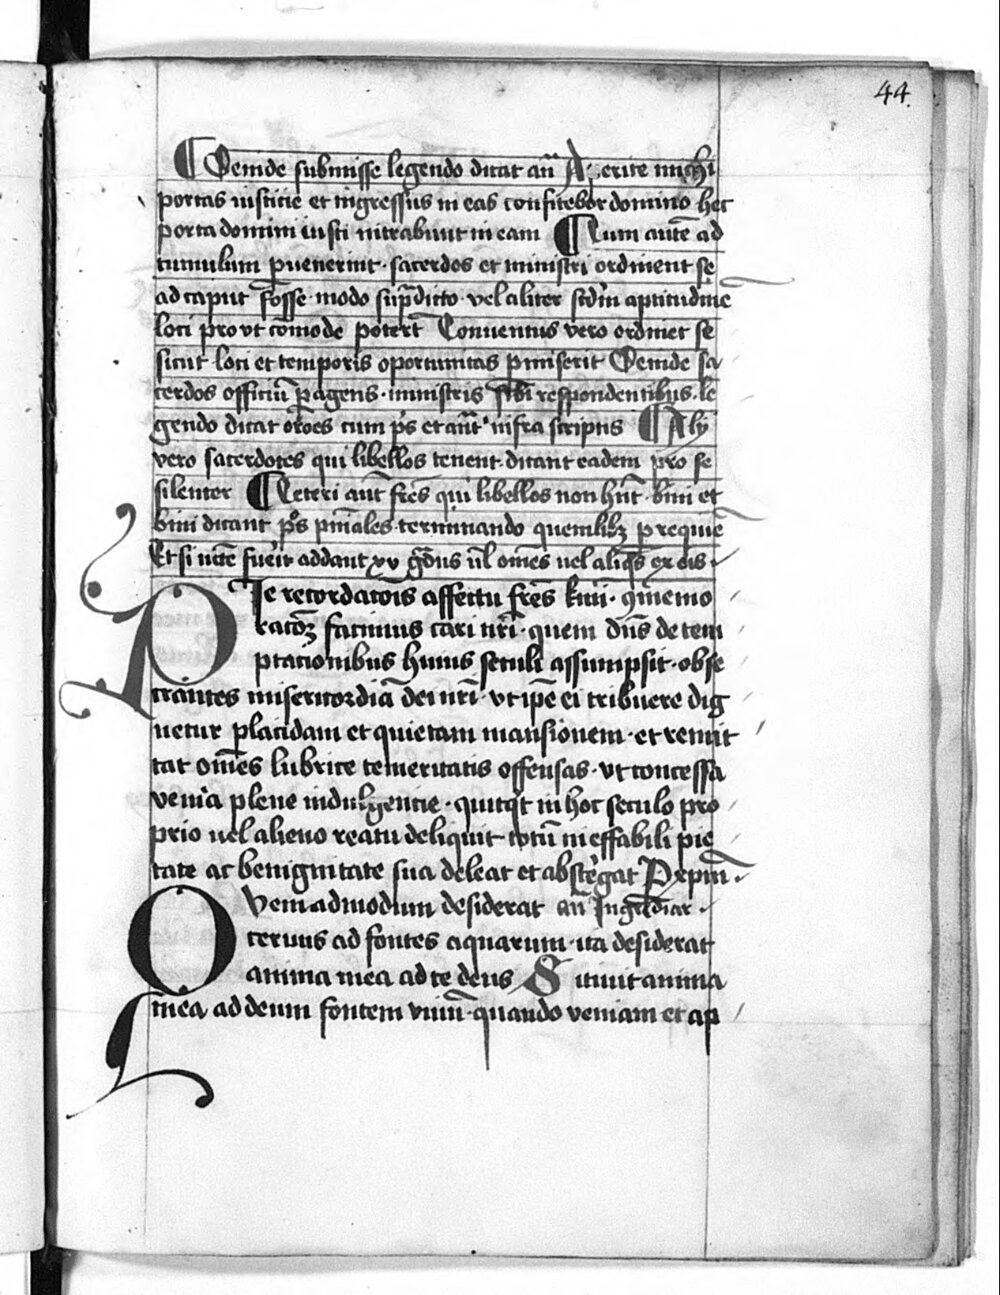 44.
¶ Deinde submisse legendo dicat an̄ Aperite michi
portas iusticie et ingressus in eas confitebor domino hec
porta domini iusti intrabunt in eam ¶ Cum autē ad
tumulum ꝑuenerint · sacerdos et ministri ordinent se
ad caput fosse modo sup̄dicto · vel aliter scd̄m aptitudinē
loci prout cōmode poterīt Conuentus vero ordinet se
sicut loci et temporis oportunitas ꝑmiserit Deinde sa
cerdos officiū ꝑagens · ministris sibi respondentibus · le
gendo dicat or̄oes cum p̄s et an̄t infra scriptis ¶ Alij
vero sacerdotes qui libellos tenent · dicant eadem pro se
silenter ¶ Ceteri aut̄ fr̄es qui libellos non hn̄t · bini et
bini dicant p̄s terminando quemlibꝫ ꝑ requiē
Et si nc̄ce fuerit addant xv gͣdus vl̄ omēs uel aliqͦs ex eis ·
PIe recordacōis affectu fr̄es kmi · ꝯmemo
racōꝫ facimus cari nr̄i · quem dn̄s de tem
ptacionibus huius seculi assumpsit · obse
crantes misericordiā dei nr̄i · vt ip̄e ei tribuere dig
netur placidam et quietam mansionem · et remit
tat omēs lubrice temeritatis offensas · vt concessa
venia plene indulgentie · quitqͥt in hoc seculo pro
prio uel alieno reatu deliquit totū ineffabili pie
tate ac benignitate sua deleat et abstergat
QVemadmodum desiderat an̄ Ingrediar ·
ceruus ad fontes aquarum · ita desiderat
anima mea ad te deus Sitiuit anima
mea ad deum fontem viuū · quando veniam et ap